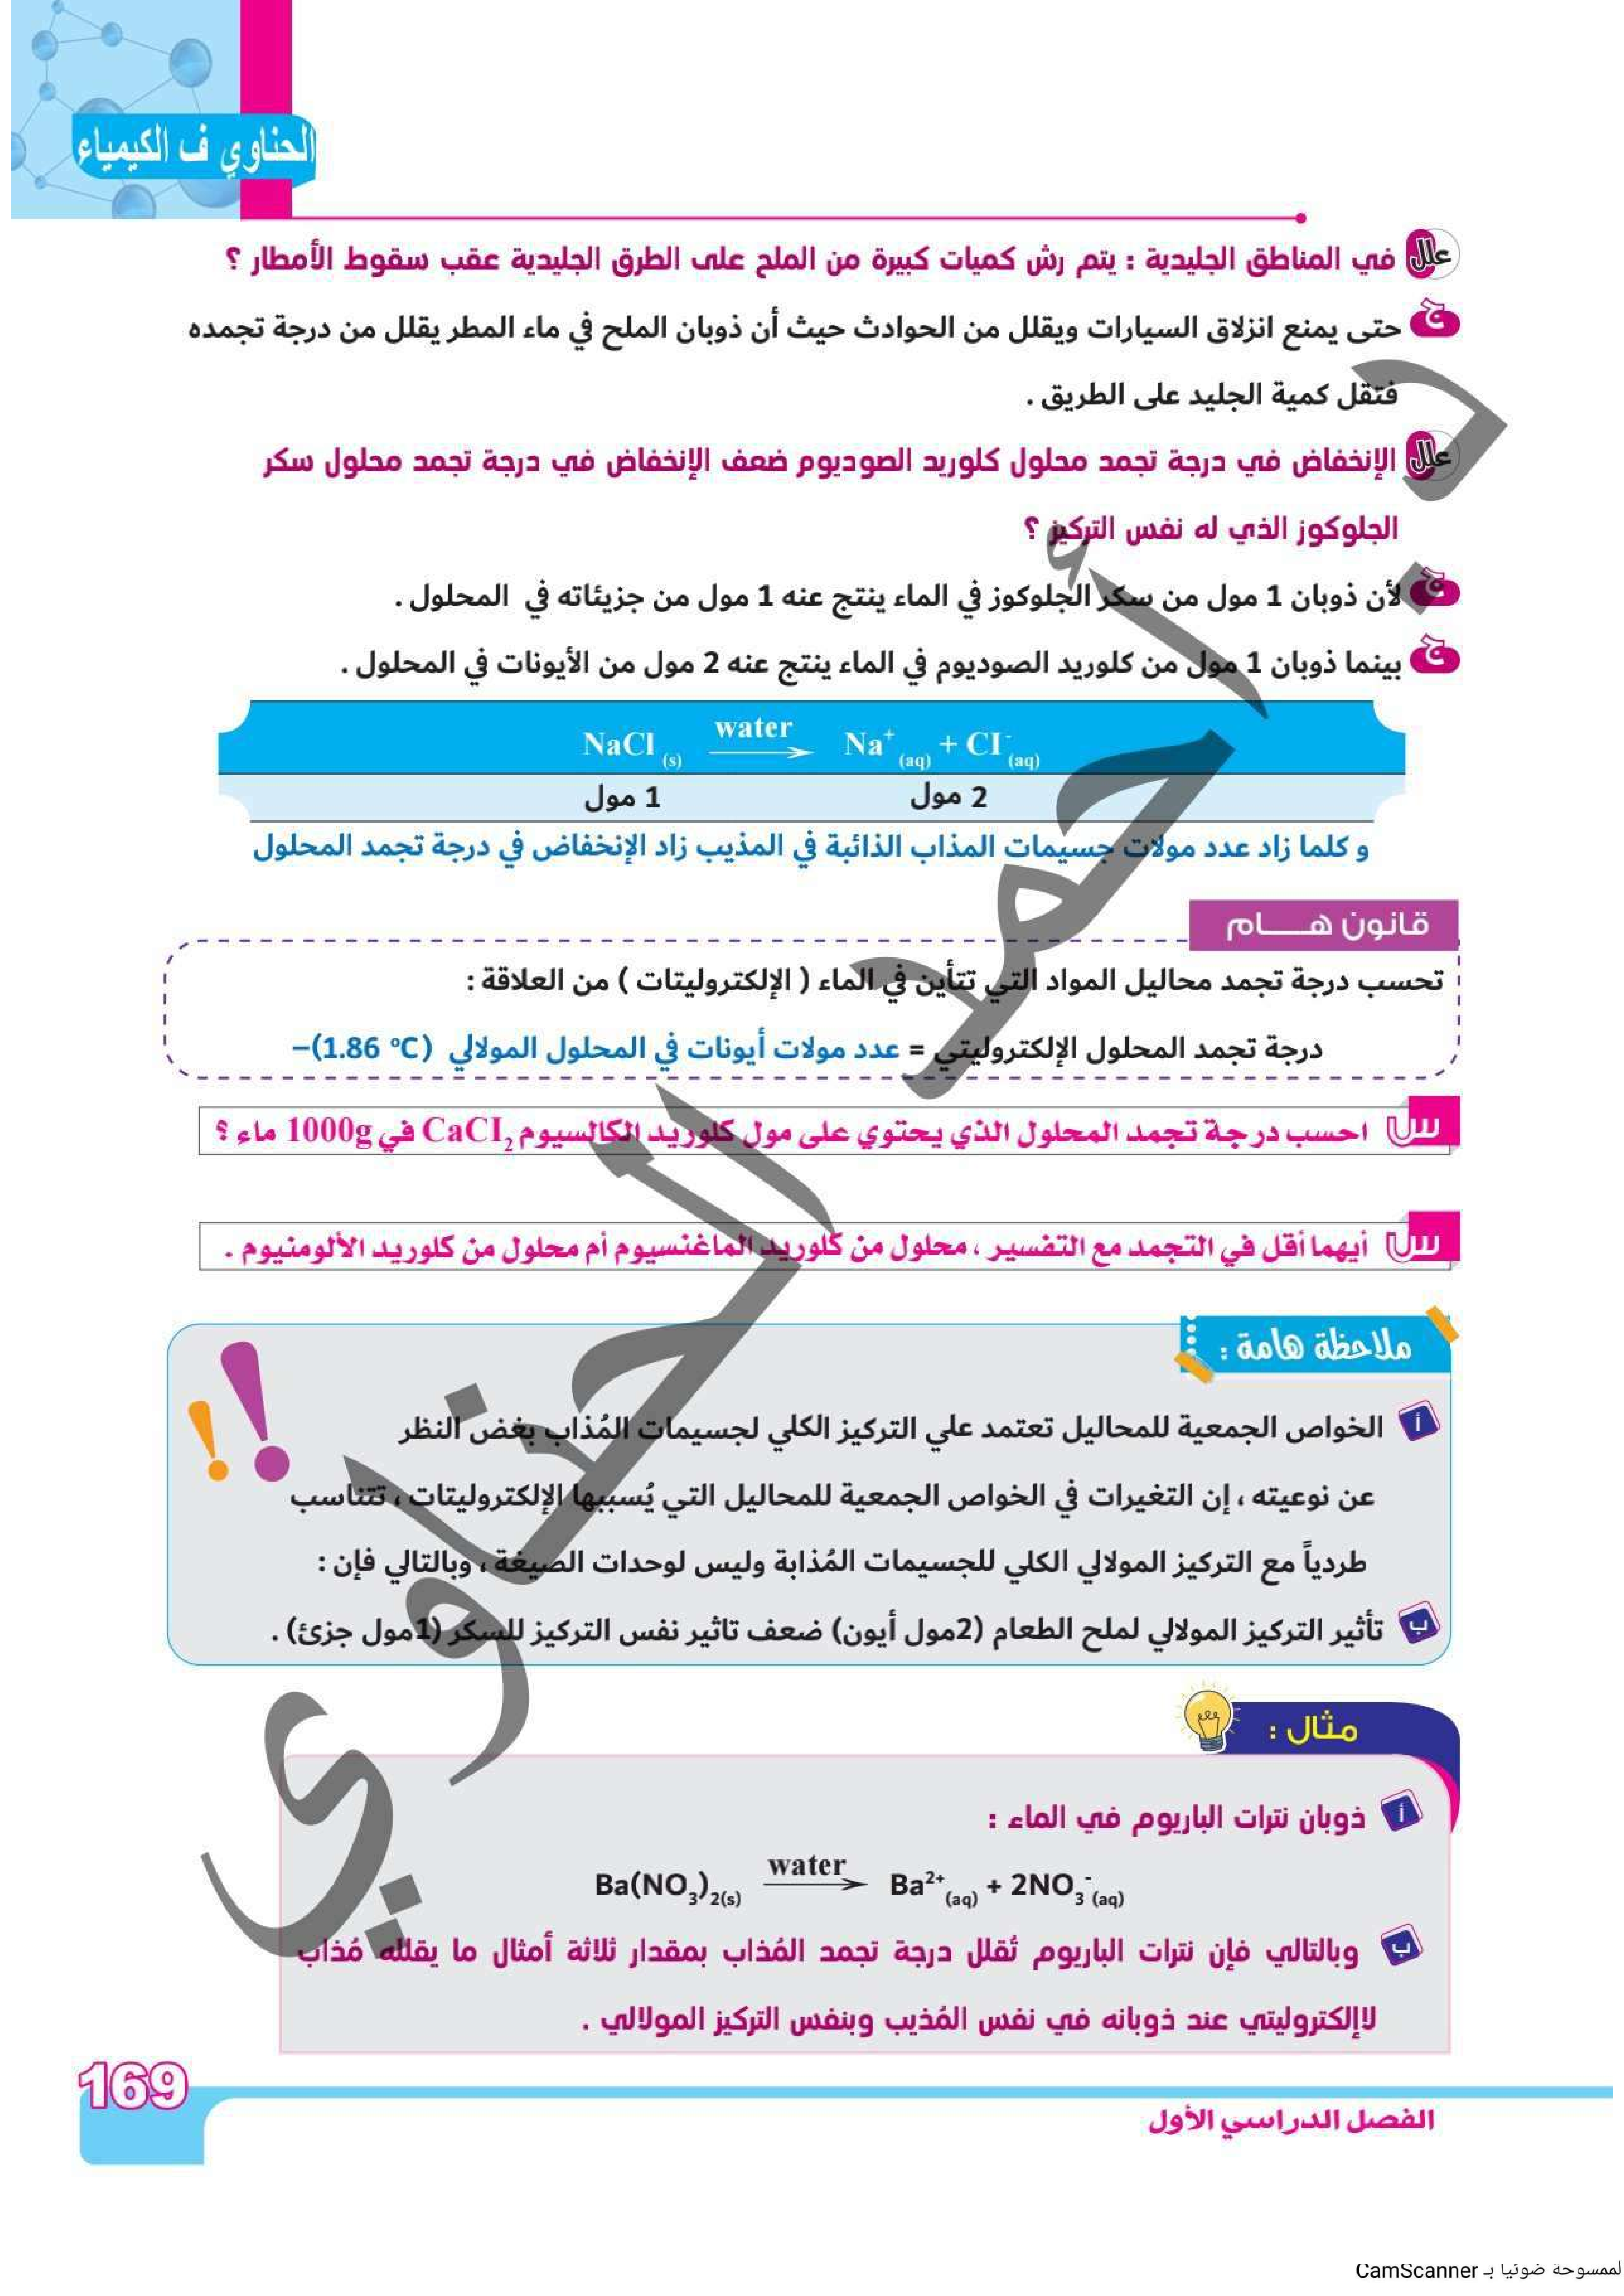 الحناوي ف الكيمياء
علل في المناطق الجليدية : يتم رش كميات كبيرة من الملح على الطرق الجليدية عقب سقوط الأمطار ؟
ج حتى يمنع انزلاق السيارات ويقلل من الحوادث حيث أن ذوبان الملح في ماء المطر يقلل من درجة تجمده
فتقل كمية الجليد على الطريق .
علل الإنخفاض في درجة تجمد محلول كلوريد الصوديوم ضعف الإنخفاض في درجة تجمد محلول سكر
الجلوكوز الذي له نفس التركيز ؟
ج لأن ذوبان 1 مول من سكر الجلوكوز في الماء ينتج عنه 1 مول من جزيئاته في المحلول .
ج بينما ذوبان 1 مول من كلوريد الصوديوم في الماء ينتج عنه 2 مول من الأيونات في المحلول .
NaCl (s) water → Na⁺ (aq) + CI⁻ (aq)
1 مول 2 مول
و كلما زاد عدد مولات جسيمات المذاب الذائبة في المذيب زاد الإنخفاض في درجة تجمد المحلول
قانون هـــام
تحسب درجة تجمد محاليل المواد التي تتأين في الماء ( الإلكتروليتات ) من العلاقة :
درجة تجمد المحلول الإلكتروليتي = عدد مولات أيونات في المحلول المولالي (1.86 °C)–
س احسب درجة تجمد المحلول الذي يحتوي على مول كلوريد الكالسيوم CaCI₂ في 1000g ماء ؟
س أيهما أقل في التجمد مع التفسير ، محلول من كلوريد الماغنسيوم أم محلول من كلوريد الألومنيوم .
ملاحظة هامة :
أ الخواص الجمعية للمحاليل تعتمد علي التركيز الكلي لجسيمات المُذاب بغض النظر
عن نوعيته ، إن التغيرات في الخواص الجمعية للمحاليل التي يُسببها الإلكتروليتات ، تتناسب
طردياً مع التركيز المولالي الكلي للجسيمات المُذابة وليس لوحدات الصيغة ، وبالتالي فإن :
ب تأثير التركيز المولالي لملح الطعام (2مول أيون) ضعف تاثير نفس التركيز للسكر (1مول جزئ) .
مثال :
أ ذوبان نترات الباريوم في الماء :
Ba(NO₃)₂(s) water → Ba²⁺ (aq) + 2NO₃⁻ (aq)
ب وبالتالي فإن نترات الباريوم تُقلل درجة تجمد المُذاب بمقدار ثلاثة أمثال ما يقلله مُذاب
لاإلكتروليتي عند ذوبانه في نفس المُذيب وبنفس التركيز المولالي .
169
الفصل الدراسي الأول
د. أحمد الحناوي
لممسوحة ضوئيا بـ CamScanner